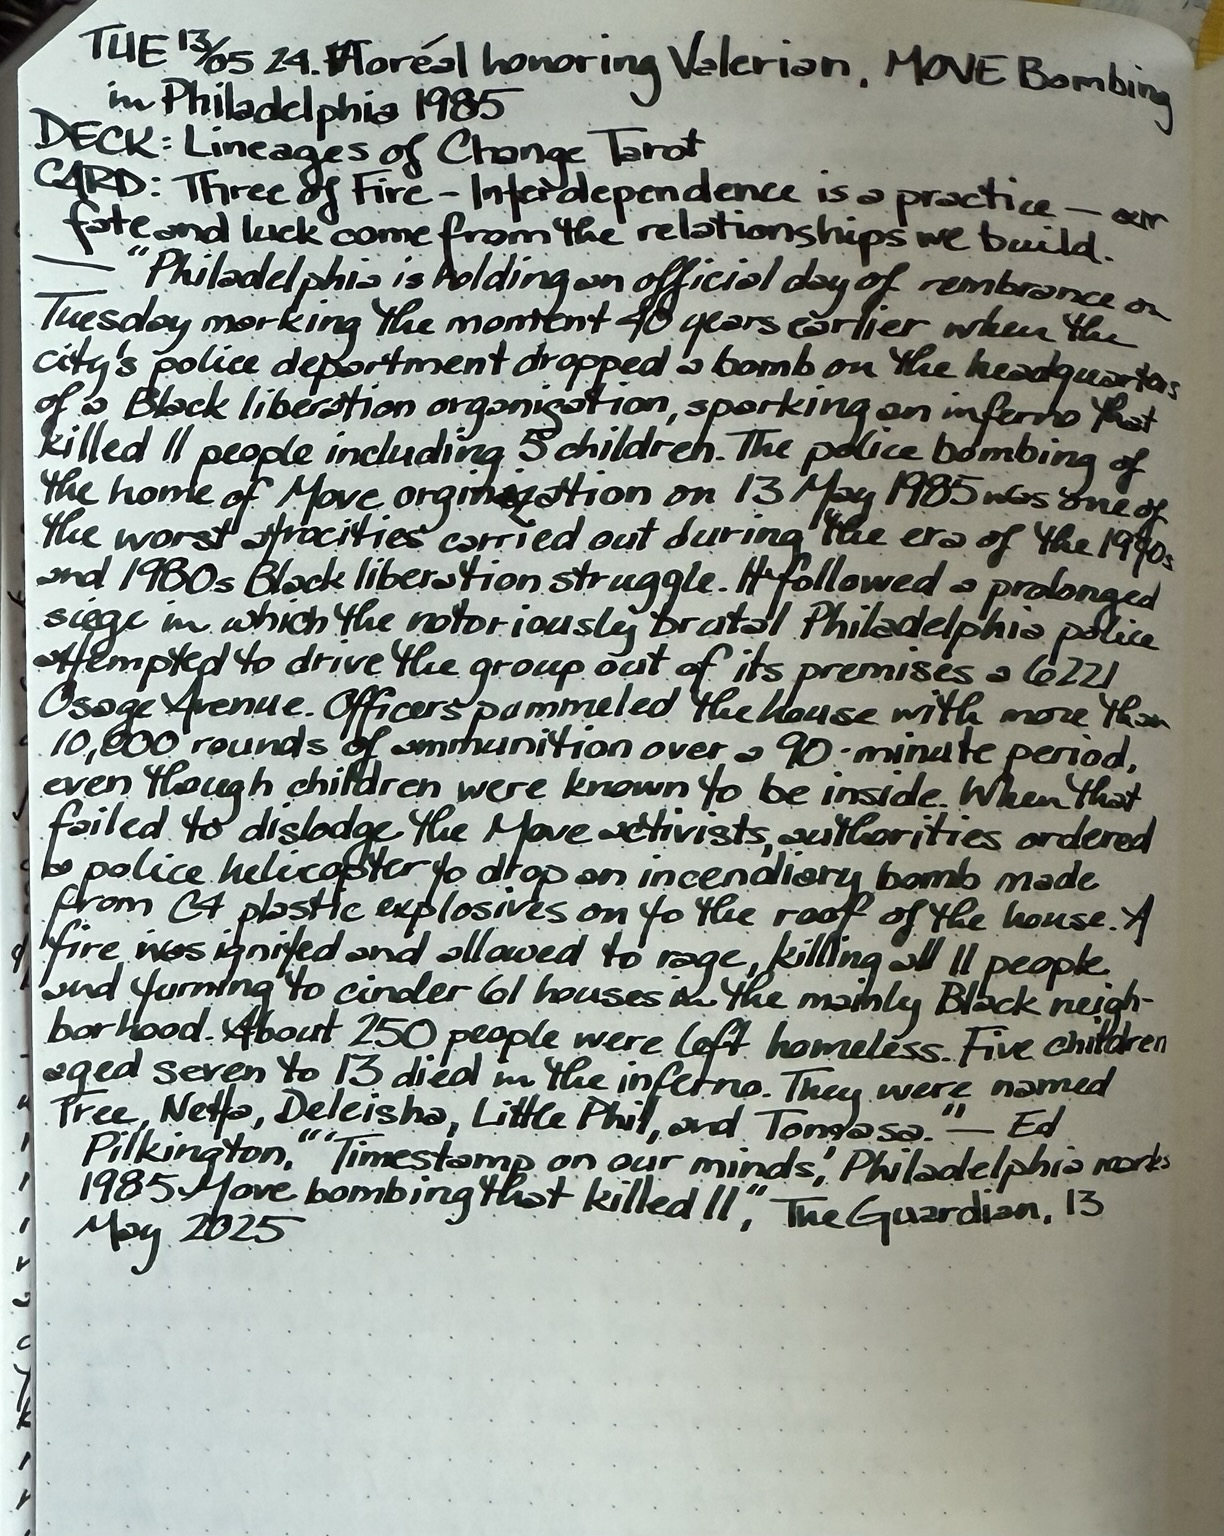 TUE 13/05 24. Floréal honoring Valerian, MOVE Bombing
in Philadelphia 1985
DECK: Lineages of Change Tarot
CARD: Three of Fire – Interdependence is a practice – our
fate and luck come from the relationships we build.
— "Philadelphia is holding an official day of rembrance on
Tuesday marking the moment 40 years earlier when the
city's police department dropped a bomb on the headquarters
of a Black liberation organization, sparking an inferno that
killed 11 people including 5 children. The police bombing of
the home of Move orginization on 13 May 1985 was one of
the worst atrocities carried out during the era of the 1990s
and 1980s Black liberation struggle. It followed a prolonged
siege in which the notoriously brutal Philadelphia police
attempted to drive the group out of its premises a 6221
Osage Avenue. Officers pummeled the house with more than
10,000 rounds of ammunition over a 90-minute period,
even though children were known to be inside. When that
failed to dislodge the Move activists, authorities ordered
a police helicopter to drop an incendiary bomb made
from C4 plastic explosives on to the roof of the house. A
fire was ignited and allowed to rage, killing all 11 people
and turning to cinder 61 houses in the mainly Black neigh-
borhood. About 250 people were left homeless. Five children
aged seven to 13 died in the inferno. They were named
Tree, Netta, Deleisha, Little Phil, and Tomasa." — Ed
Pilkington, "'Timestamp on our minds,' Philadelphia marks
1985 Move bombing that killed 11", The Guardian, 13
May 2025